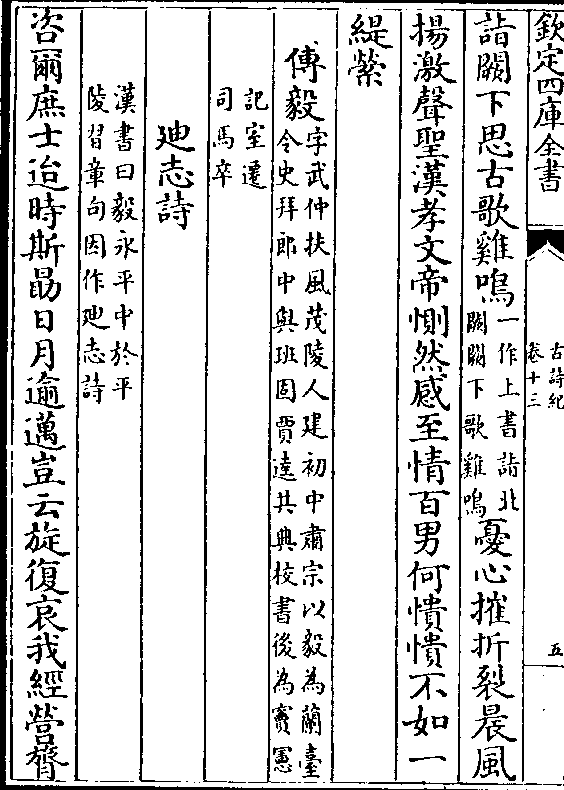 欽定四庫全書
古詩紀
卷十三
五
詣闕下思古歌雞鳴一作上書詣北
闕闕下歌雞鳴憂心摧折裂晨風
揚激聲聖漢孝文帝惻然感至情百男何憒憒不如一
緹縈
傅毅字武仲扶風茂陵人建初中肅宗以毅為蘭臺
令史拜郎中與班固賈逵共典校書後為竇憲
記室遷
司馬卒
迪志詩
漢書曰毅永平中於平
陵習章句因作迪志詩
咨爾庶士迨時斯勗日月逾邁豈云旋復哀我經營膂